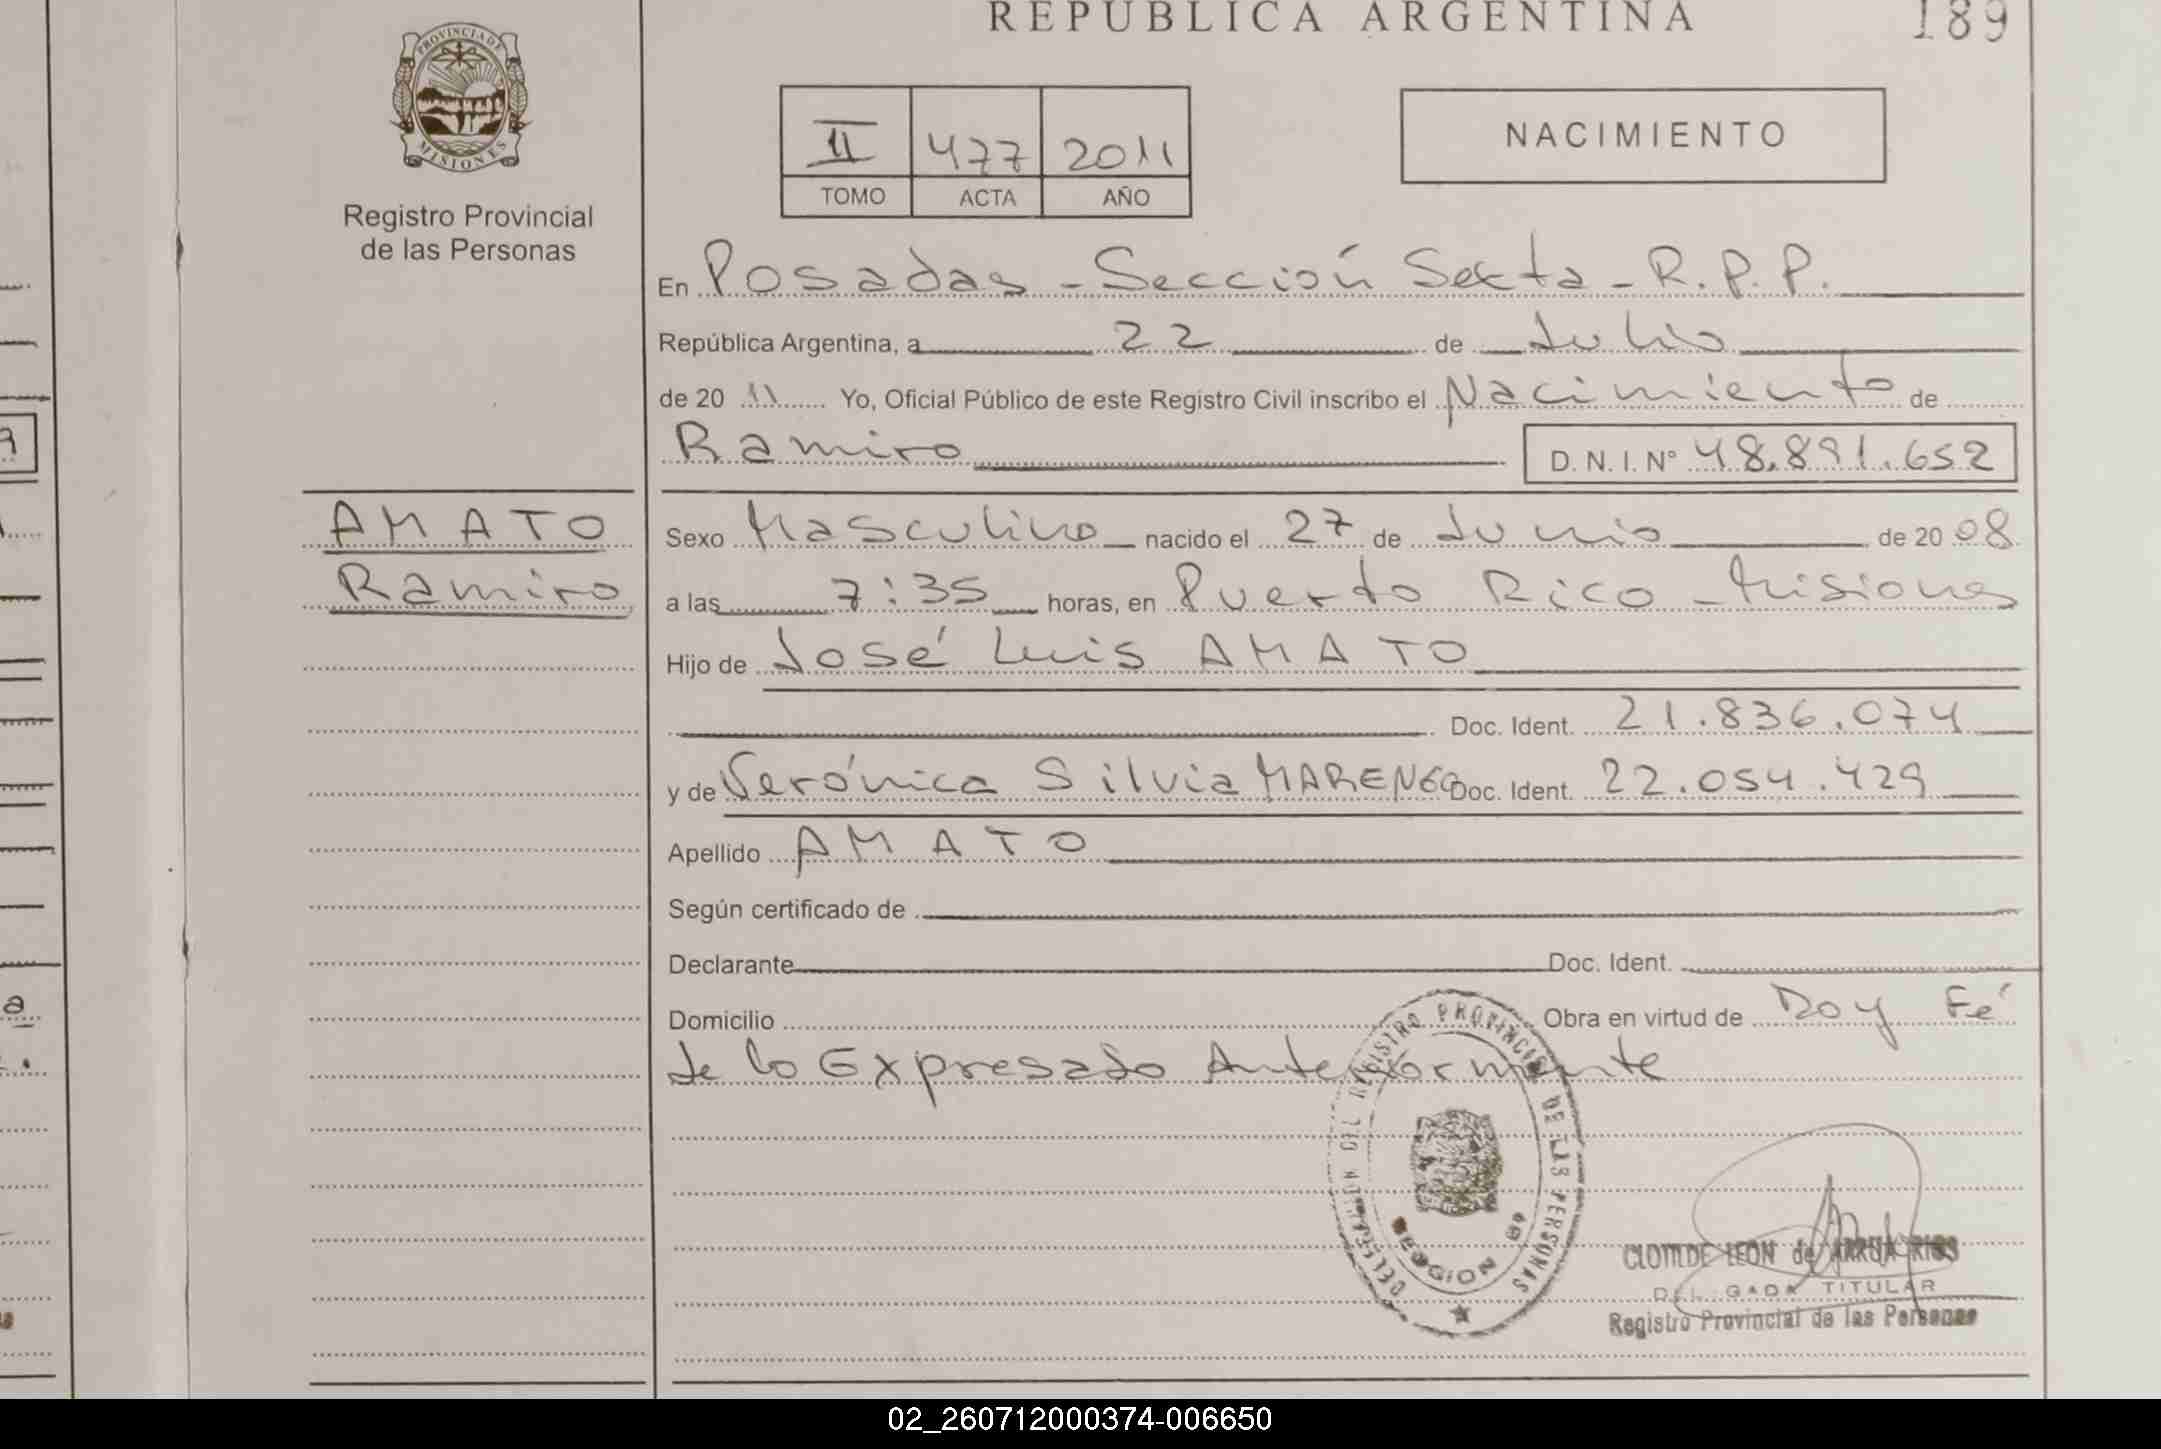 REPUBLICA ARGENTINA
189
PROVINCIA DE
MISIONES
Registro Provincial
de las Personas
II 477 2011
TOMO ACTA AÑO
NACIMIENTO
En Posadas - Sección Sexta - R.P.P.
República Argentina, a 22 de Julio
de 20 11 Yo, Oficial Público de este Registro Civil inscribo el Nacimiento de
Ramiro D. N. I. N° 48.891.652
AMATO
Ramiro
Sexo Masculino nacido el 27 de Junio de 20 08
a las 7:35 horas, en Puerto Rico - Misiones
Hijo de José Luis AMATO
Doc. Ident. 21.836.074
y de Verónica Silvia MARENGO Doc. Ident. 22.054.429
Apellido AMATO
Según certificado de
Declarante Doc. Ident.
Domicilio Obra en virtud de Doy Fé
de lo Expresado Anteriormente
DEL REGISTRO PROVINCIAL DE LAS PERSONAS
REGION
CLOTILDE LEON de ARRUA RIOS
DELEGADA TITULAR
Registro Provincial de las Personas
02_260712000374-006650